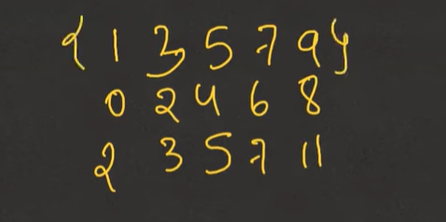 { 1 3 5 7 9 }
0 2 4 6 8
2 3 5 7 11